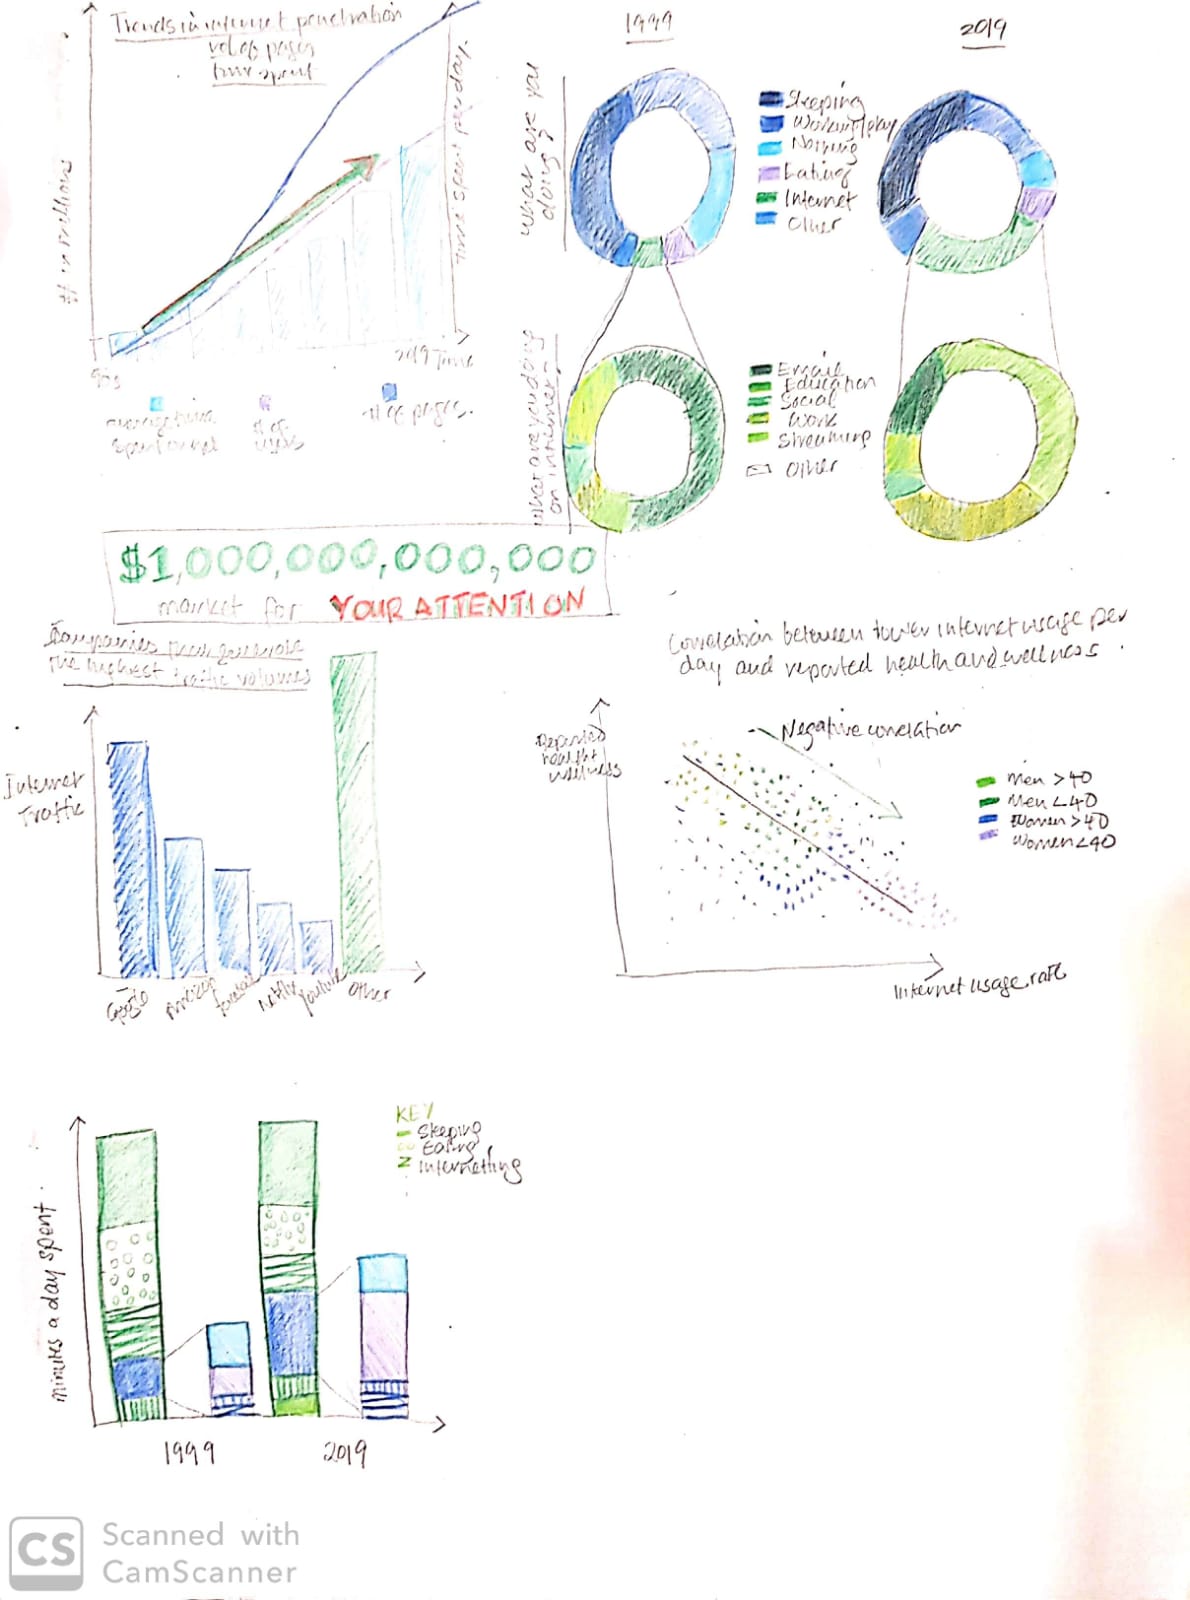 Trends in internet penetration
vol of pages
time spent
# in millions
time spent per day
95s
2019 Time
average time
spent on net
# of
users
# of pages
1999
2019
what are you
doing?
Sleeping
Working/play
Nothing
Eating
Internet
Other
what are you doing
on internet?
Email
Education
Social
Work
Streaming
Other
$1,000,000,000,000
market for YOUR ATTENTION
Companies that generate
the highest traffic volumes
Internet
Traffic
Google
Amazon
Netflix
Youtube
Other
Correlation between lower internet usage per
day and reported health and wellness.
Reported
health
wellness
Negative correlation
Men >40
Men <40
Women >40
Women <40
Internet usage rate
KEY
Sleeping
Eating
Internetting
minutes a day spent
1999
2019
CS
Scanned with
CamScanner